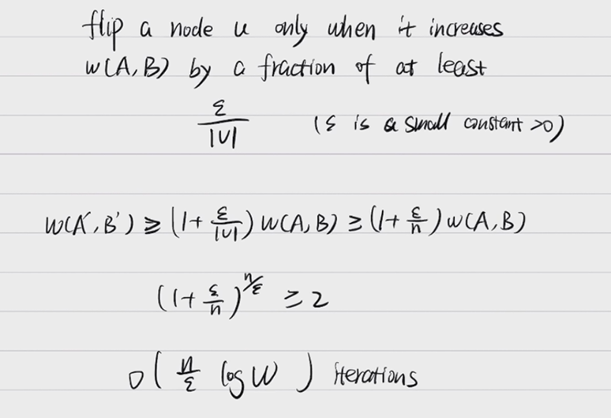 flip a node u only when it increases
w(A,B) by a fraction of at least
ε/|V| (ε is a small constant >0)
w(A',B') ≥ (1+ ε/|V|) w(A,B) ≥ (1+ ε/n) w(A,B)
(1+ ε/n)^{n/ε} ≥ 2
O( n/ε log W ) iterations